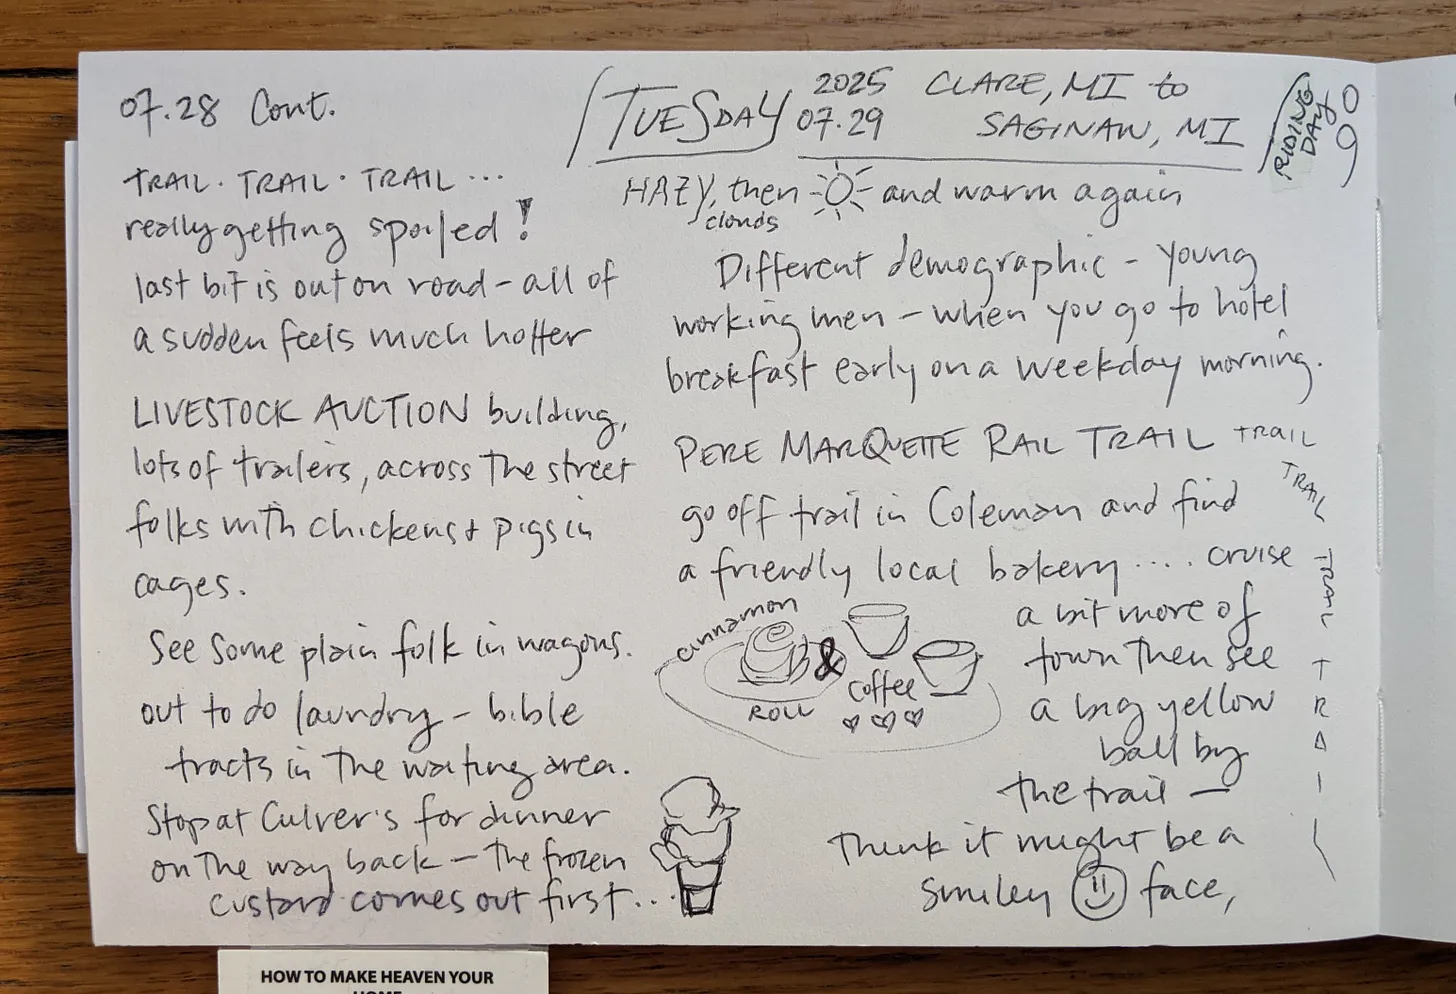 07.28 Cont.
TRAIL · TRAIL · TRAIL ...
really getting spoiled!
last bit is out on road - all of
a sudden feels much hotter
LIVESTOCK AUCTION building,
lots of trailers, across the street
folks with chickens + pigs in
cages.
See some plain folk in wagons.
out to do laundry - bible
tracts in the waiting area.
Stop at Culver's for dinner
on the way back - the frozen
custard comes out first...
TUESDAY
2025
07.29
CLARE, MI to
SAGINAW, MI
RIDING
DAY
90
HAZY, then and warm again
clouds
Different demographic - young
working men - when you go to hotel
breakfast early on a weekday morning.
PERE MARQUETTE RAIL TRAIL TRAIL
TRAIL
TRAIL
TRAIL
go off trail in Coleman and find
a friendly local bakery .... cruise
a bit more of
town then see
a big yellow
ball by
the trail —
think it might be a
smiley face,
cinnamon
ROLL
&
coffee
HOW TO MAKE HEAVEN YOUR
HOME